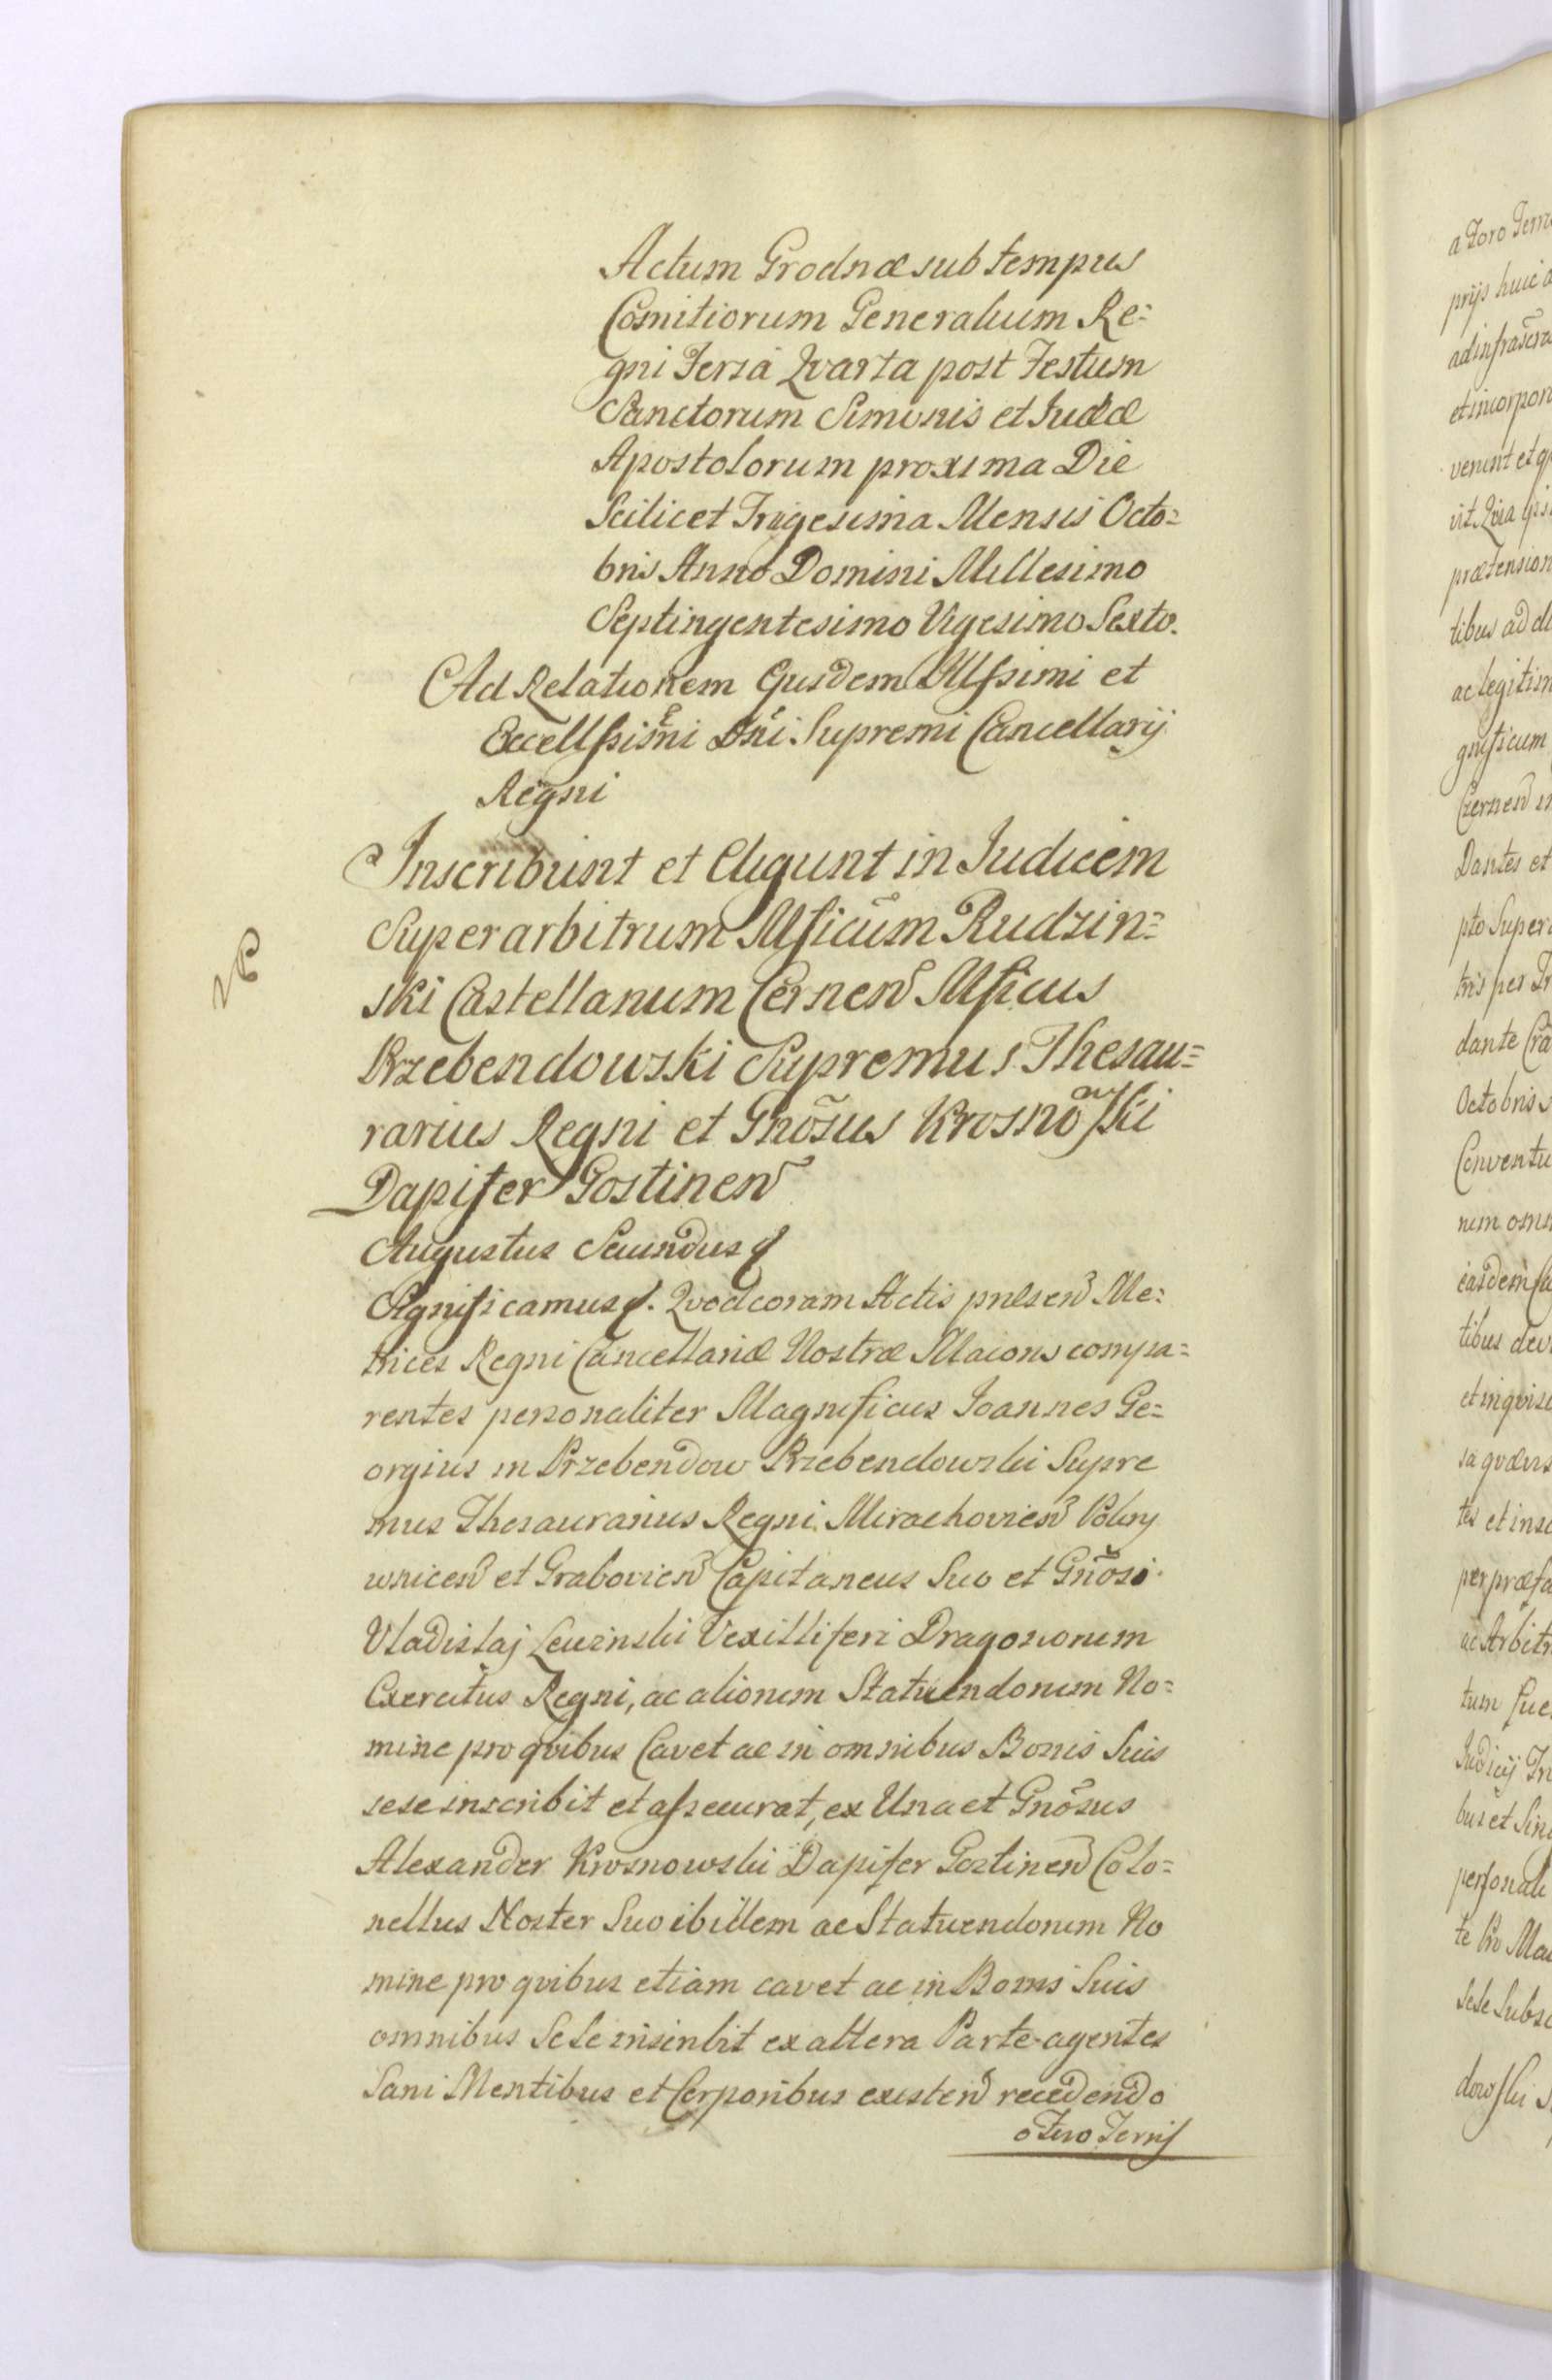 Actum Grodnæ sub tempus
Comitiorum Generalium Re=
gni Feria Qvarta post Festum
Sanctorum Simonis et Judæ
Apostolorum proxima Die
Scilicet Trigesima Mensis Octo=
bris Anno Domini Millesimo
Septingentesimo Vigesimo Sexto.
Ad Relationem Ejusdem Illssimi et
Excellssimi Dñi Supremi Cancellarij
Regni
Inscribunt et Eligunt in Judicem
Superarbitrum Mficum Rudzin=
ski Castellanum Czernen Mficus
Przebendowski Supremus Thesau=
rarius Regni et Gnõsus Krosnowski
Dapifer Gostinen
Augustus Secundus
Significamus. Qvod coram Actis pnlsen Me=
trices Regni Cancellariæ Nostræ Maioris compa=
rentes personaliter Magnificus Joannes Ge=
orgius in Przebendow Przebendowski Supre
mus Thesaurarius Regni Mirachovien
et Grabovien Capitaneus Suo et Gnõsi
Vladislaj Vexilliferi Dragonorum
Exercitus Regni, ac aliorum Statuendorum No=
mine pro qvibus Cavet ac in omnibus Bonis Suis
sese inscribit et assecurat, ex Una et Gnõsus
Alexander Krosnowski Dapifer Gostinen Colo=
nellus Noster Suo ibidem ac Statuendorum No
mine pro qvibus etiam cavet ac in Bonis Suis
omnibus Sese inscribit ex altera Parte agentes
Sani Mentibus et Corporibus existen recedendo
a Foro
a Foro
prijs huic
ad infrascra
et incorpor
verunt et
vit Qvia
prætension
tibus ad
ac legitim
gnificum
Czernen
Dantes et
pto Super
tris per
dante
Octobris
Conventu
nem
easdem
tibus
et inqvisi
sa
tes et
per præfa
ac Arbitr
tum fue
Judicij
bus et Sin
personali
te Pro Ma
Sese Subsc
dowski S